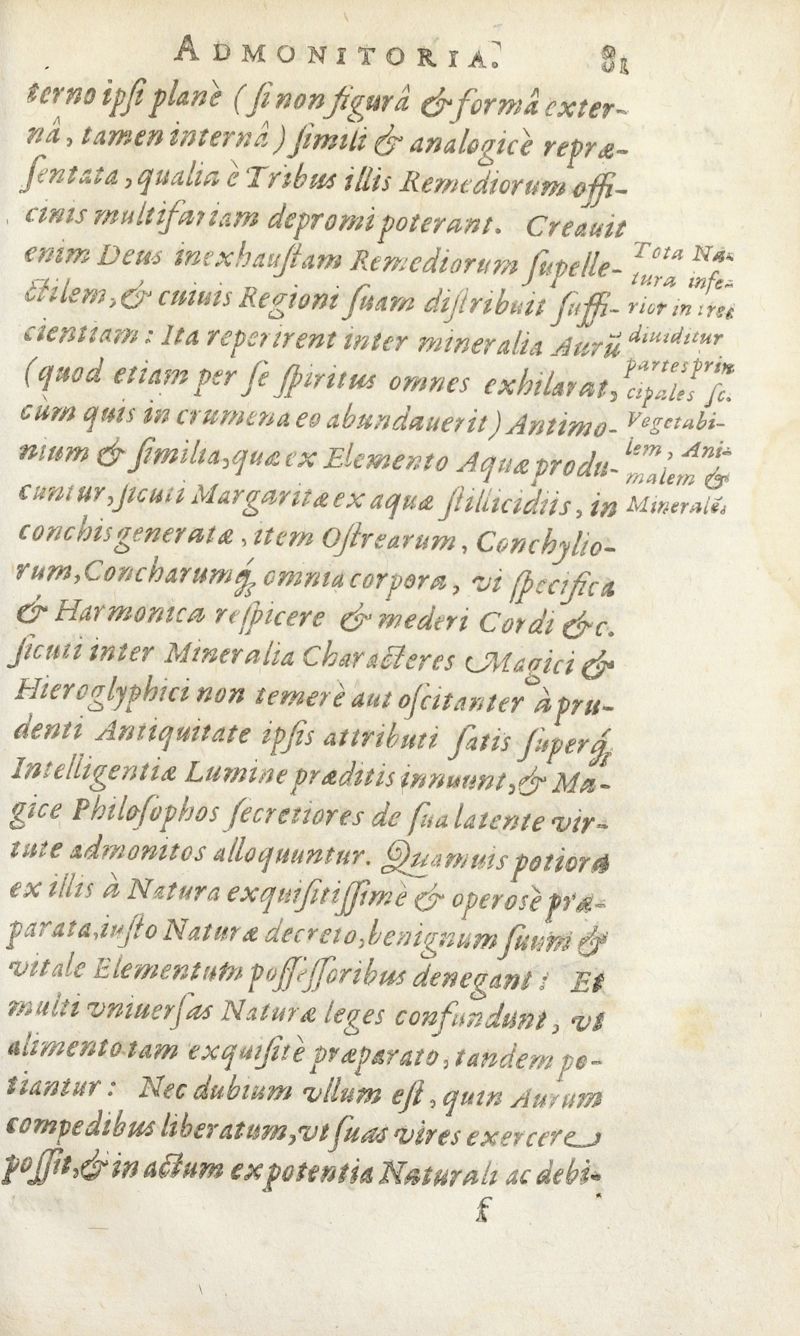 ADMONITORIA. 81
terno ipſi planè (ſi non figurâ & formâ exter-
nâ, tamen internâ) ſimili & analogicè repræ-
ſentata, qualia è Tribus illis Remediorum offi-
cinis multifariam depromi poterant. Creauit
enim Deus inexhauſtam Remediorum ſupelle-
ctilem, & cuiuis Regioni ſuam diſtribuit ſuffi-
cientiam: Ita reperirent inter mineralia Aurũ
(quod etiam per ſe ſpiritus omnes exhilarat,
cùm quis in crumena eo abundauerit) Antimo-
nium & ſimilia, quæ ex Elemento Aquæ produ-
cuntur, ſicuti Margaritæ ex aquæ ſtillicidiis, in
conchis generatæ, item Oſtrearum, Conchylio-
rum, Concharumq́; omnia corpora, vt ſpecifica
& Harmonica reſpicere & mederi Cordi &c.
ſicuti inter Mineralia Characteres Magici &
Hieroglyphici non temerè aut oſcitanter à pru-
denti Antiquitate ipſis attributi ſatis ſuperq́;
Intelligentiæ Lumine præditis innuunt, & Ma-
gice Philoſophos ſecretiores de ſua latente vir-
tute admonitos alloquuntur. Quamuis potiora
ex illis à Natura exquiſitiſſimè & operosè præ-
parata, iuſto Naturæ decreto, benignum ſuum &
vitale Elementum poſſeſſoribus denegant: Et
multi vniuerſas Naturæ leges confundunt, vt
alimento tam exquiſitè præparato, tandem po-
tiantur: Nec dubium vllum eſt, quin Aurum
compedibus liberatum, vt ſuas vires exercere
poſſit, & in actum ex potentia Naturali ac debi-
f
Tota Na-
tura infe-
rior in tres
diuiditur
partes prin
cipales ſc.
Vegetabi-
lem, Ani-
malem &
Mineralẽ